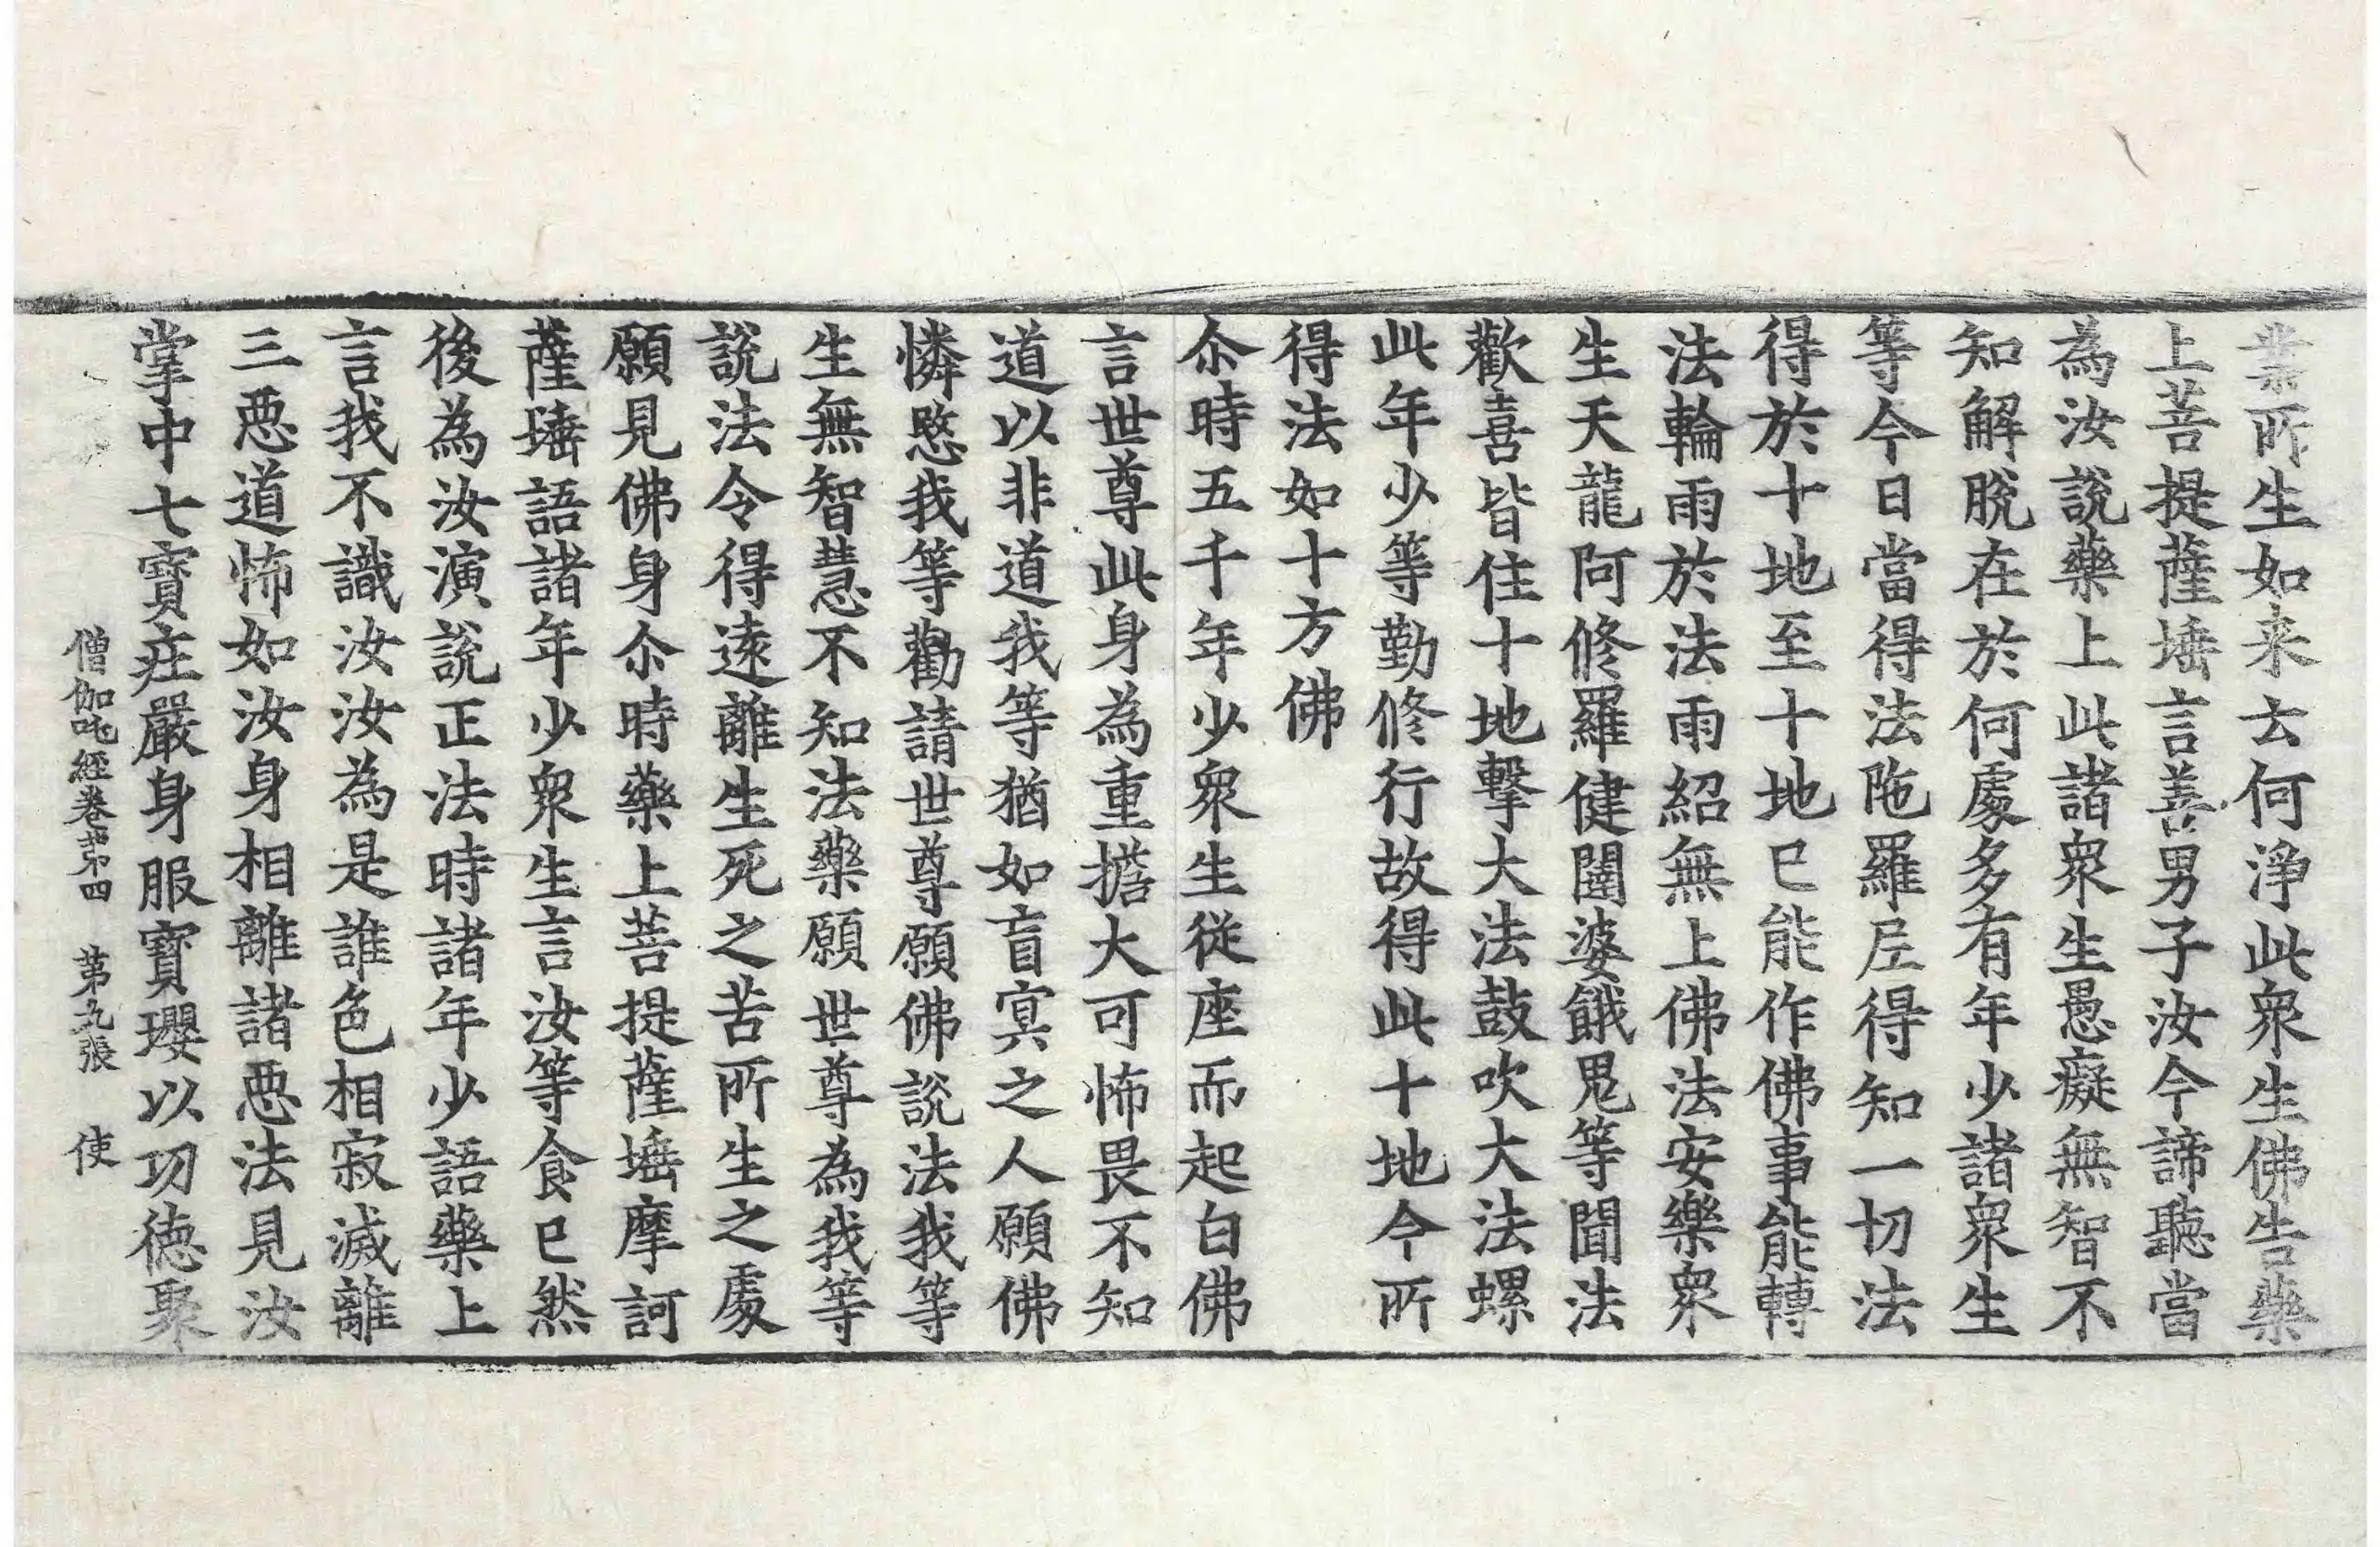 業所生如来云何淨此衆生佛告藥
上菩提薩埵言善男子汝今諦聽當
為汝說藥上此諸衆生愚癡無智不
知解脫在於何處多有年少諸衆生
等今日當得法陁羅尼得知一切法
得於十地至十地已能作佛事能轉
法輪雨於法雨紹無上佛法安樂衆
生天龍阿修羅健闥婆餓鬼等聞法
歡喜皆住十地擊大法鼓吹大法螺
此年少等勤修行故得此十地今所
得法如十方佛
尒時五千年少衆生從座而起白佛
言世尊此身為重擔大可怖畏不知
道以非道我等猶如盲冥之人願佛
憐愍我等勸請世尊願佛說法我等
生無智慧不知法藥願世尊為我等
說法令得遠離生死之苦所生之處
願見佛身尒時藥上菩提薩埵摩訶
薩埵語諸年少衆生言汝等食已然
後為汝演說正法時諸年少語藥上
言我不識汝汝為是誰色相寂滅離
三惡道怖如汝身相離諸惡法見汝
掌中七寶莊嚴身服寶瓔以功德聚
僧伽吒經卷第四 第九張 使